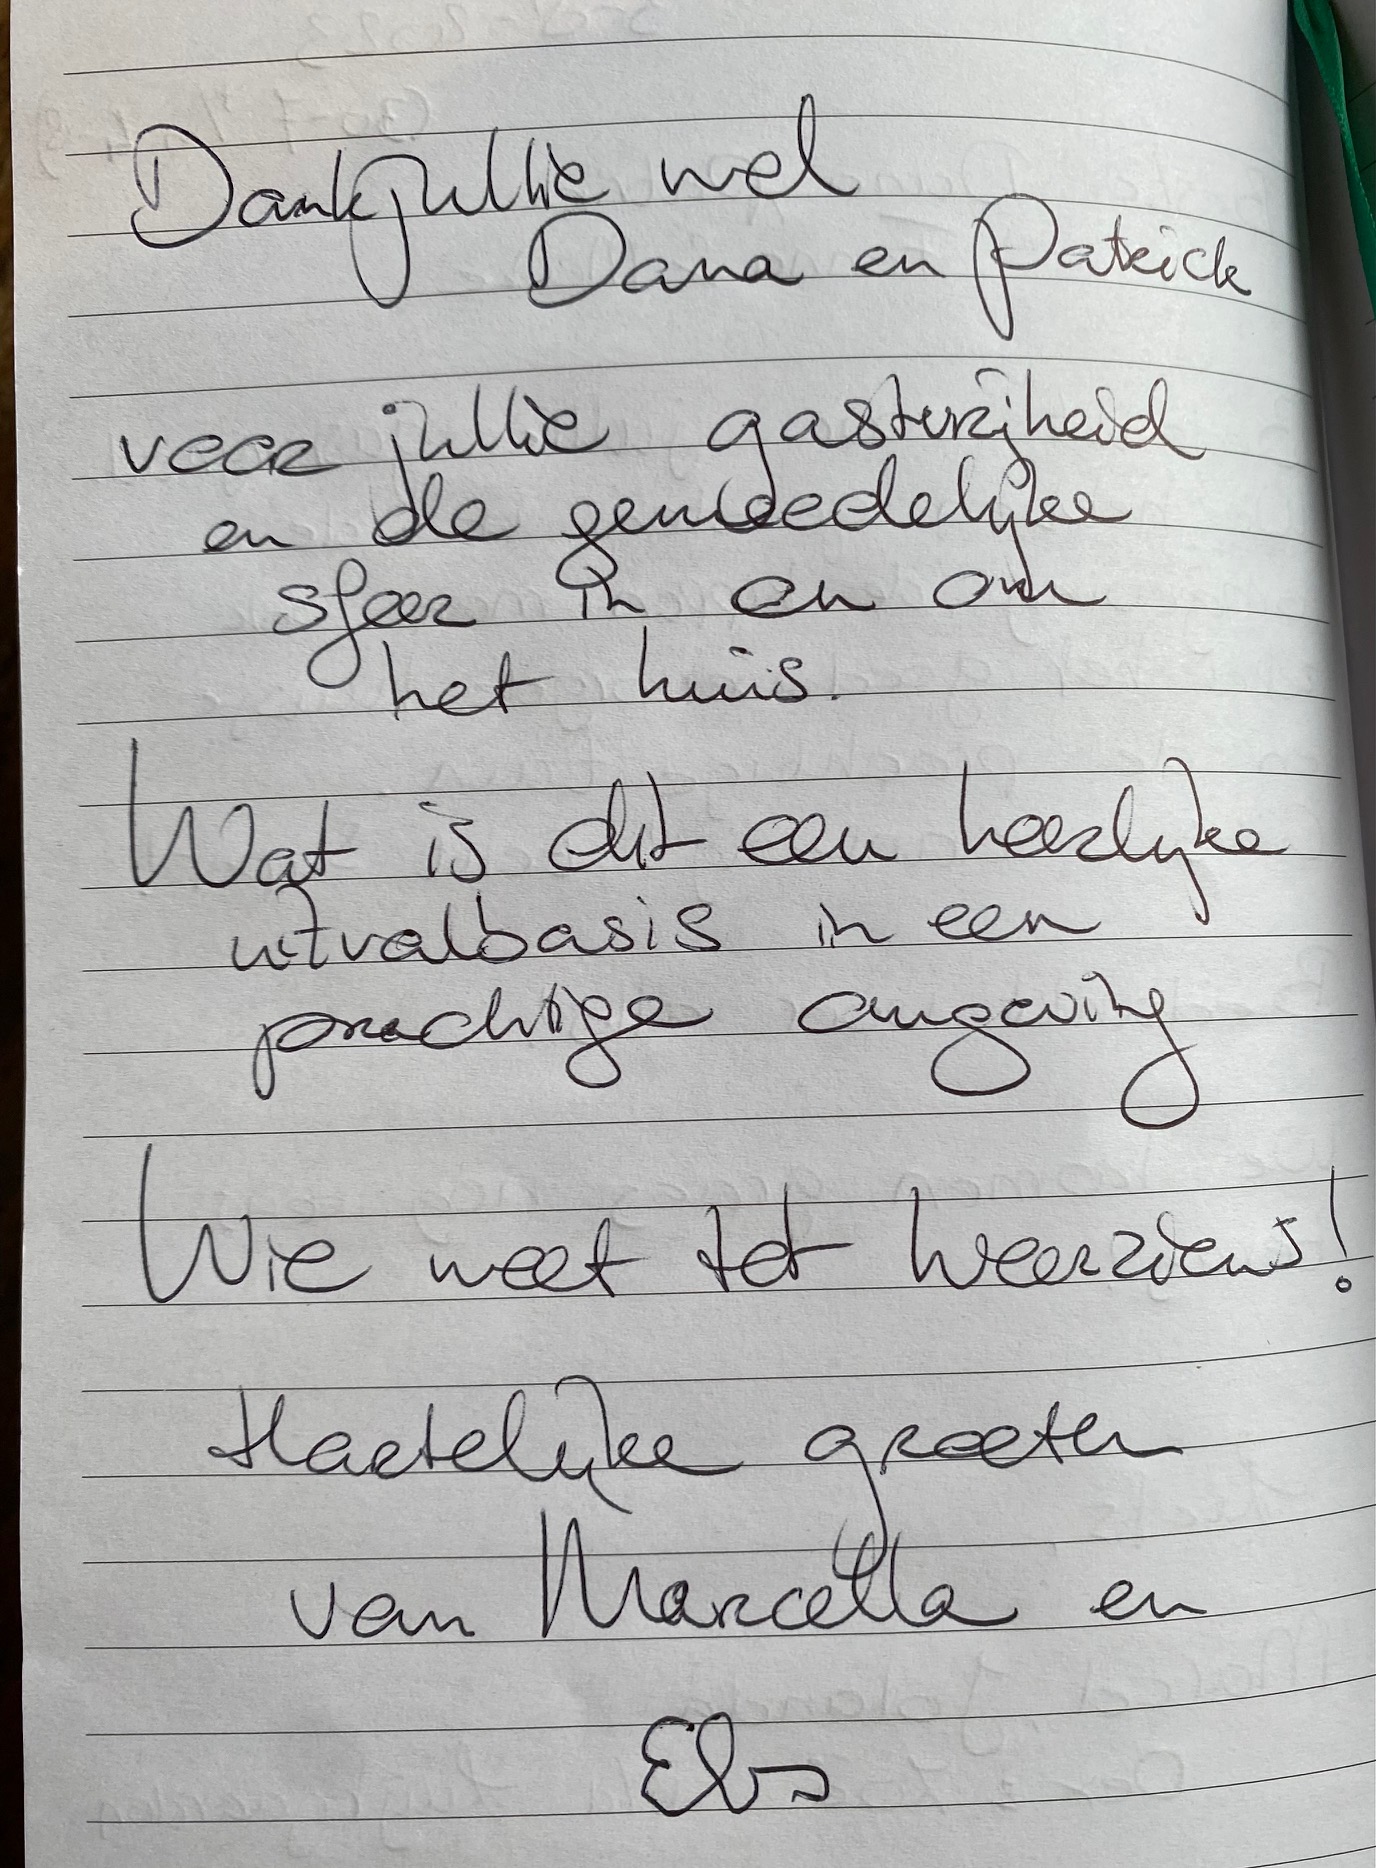 Dank jullie wel
Dana en Patrick
voor jullie gastvrijheid
en de gemoedelijke
sfeer in en om
het huis.
Wat is dit een heerlijke
uitvalbasis in een
prachtige omgeving
Wie weet tot weerziens!
Hartelijke groeten
van Marcella en
Els